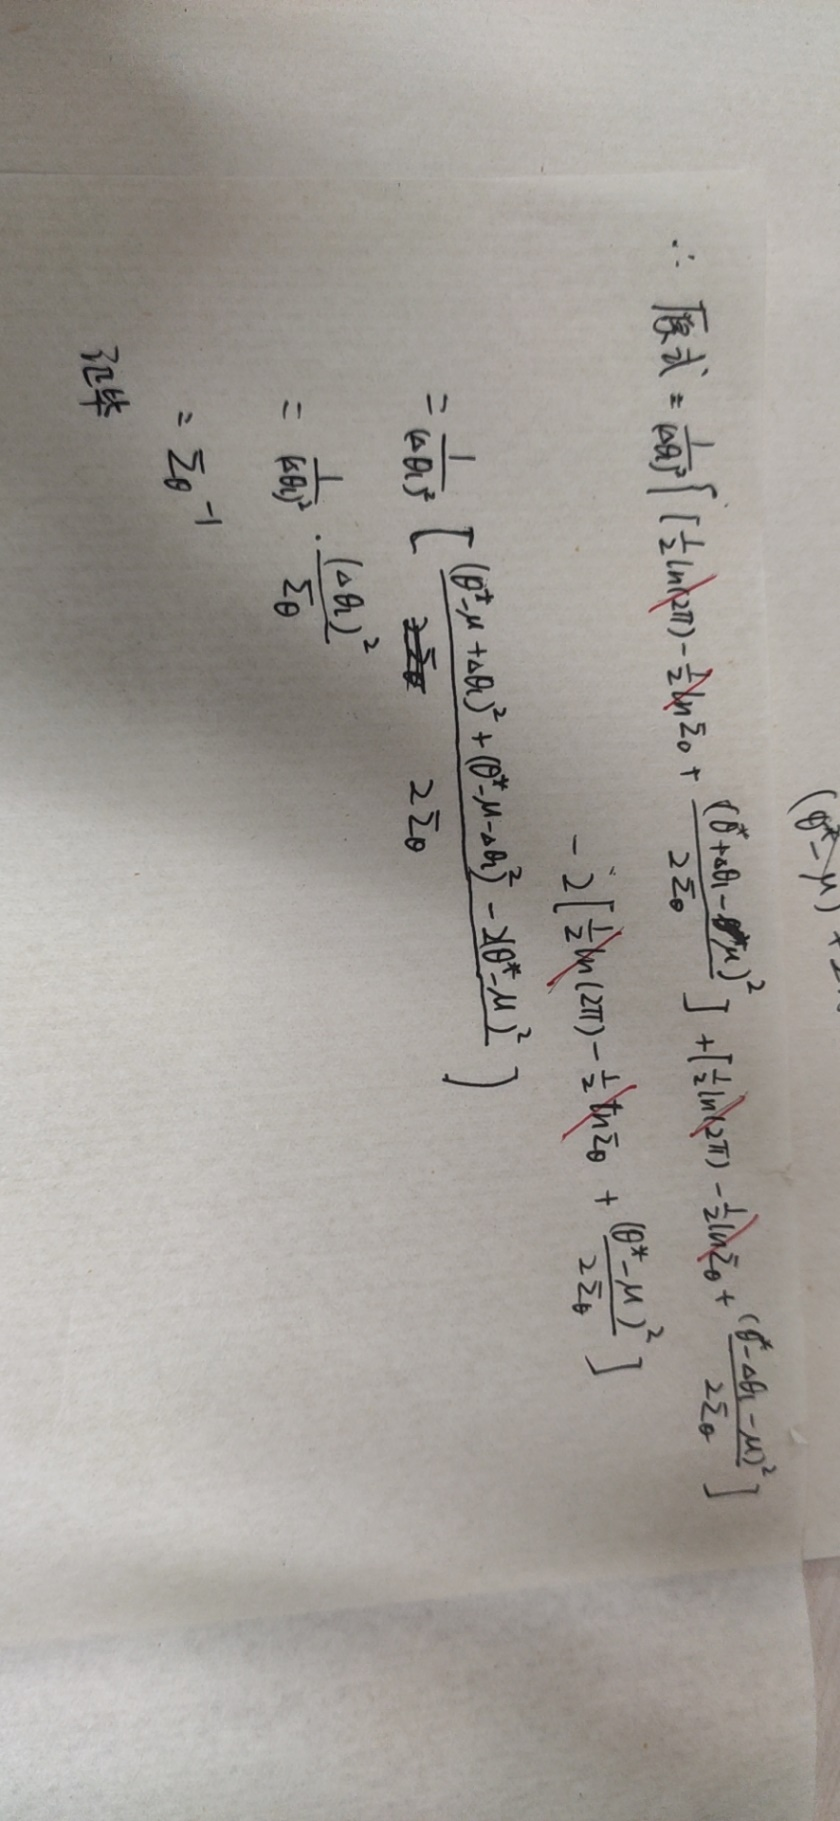 (θ*-μ) + 2
∴ 原式 = 1/(Δθ₁)² { [ 1/2 ln(2π) - 1/2 ln Σθ + (θ*+Δθ₁-μ)²/2Σθ ] + [ 1/2 ln(2π) - 1/2 ln Σθ + (θ*-Δθ₁-μ)²/2Σθ ]
- 2 [ 1/2 ln(2π) - 1/2 ln Σθ + (θ*-μ)²/2Σθ ]
= 1/(Δθ₁)² [ (θ*-μ+Δθ₁)² + (θ*-μ-Δθ₁)² - 2(θ*-μ)² / 2Σθ ]
= 1/(Δθ₁)² · (Δθ₁)²/Σθ
= Σθ⁻¹
证毕